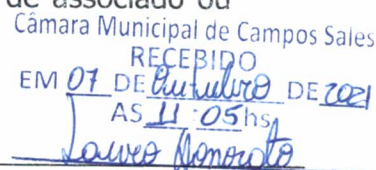 de associado ou
Câmara Municipal de Campos Sales
RECEBIDO
EM 07 DE Outubro DE 2021
AS 11:05hs
Lauro Honorato